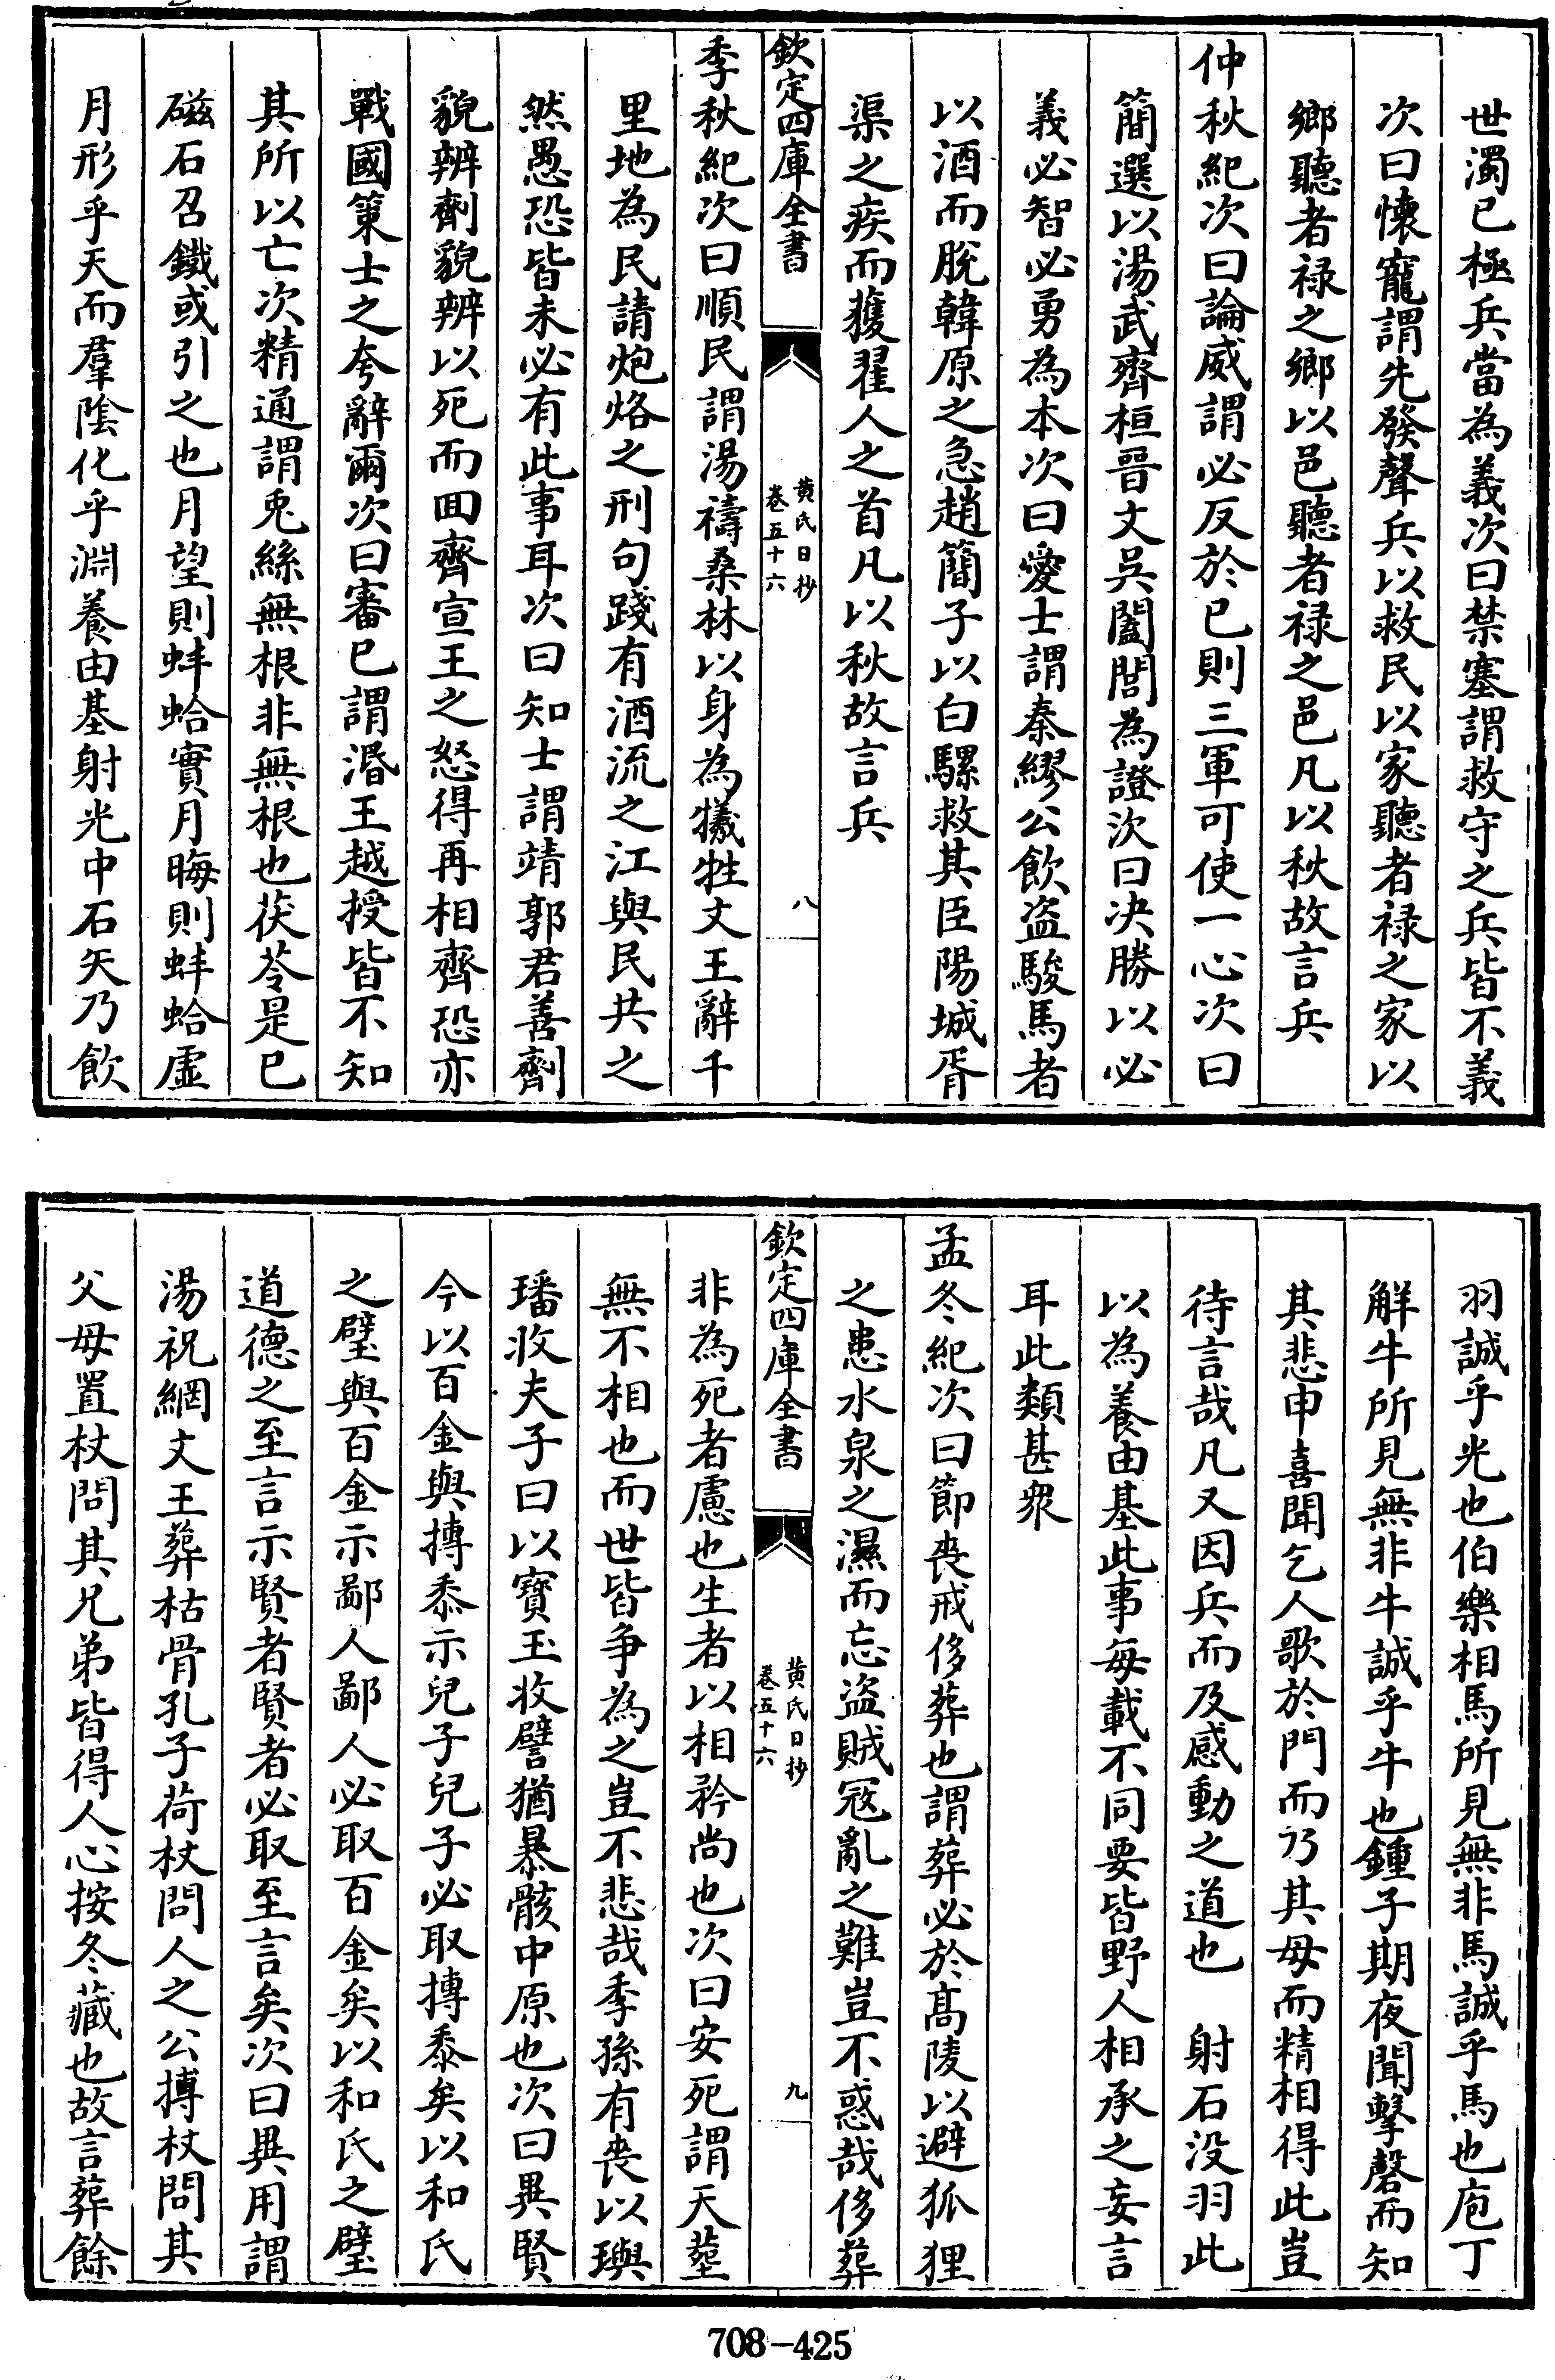 世濁已極兵當為義次曰禁塞謂救守之兵皆不義
次曰懷寵謂先發聲兵以救民以家聽者禄之家以
鄉聽者禄之鄉以邑聽者禄之邑凡以秋故言兵
仲秋紀次曰論威謂必反於已則三軍可使一心次曰
簡選以湯武齊桓晉文吳闔閭為證次曰决勝以必
義必智必勇為本次曰愛士謂秦繆公飲盜駿馬者
以酒而脫韓原之急趙簡子以白騾救其臣陽城胥
渠之疾而獲翟人之首凡以秋故言兵
欽定四庫全書
黄氏日抄
卷五十六
八
季秋紀次曰順民謂湯禱桑林以身為犧牲文王辭千
里地為民請炮烙之刑句踐有酒流之江與民共之
然愚恐皆未必有此事耳次曰知士謂靖郭君善劑
貌辨劑貌辨以死而囬齊宣王之怒得再相齊恐亦
戰國策士之夸辭爾次曰審已謂湣王越授皆不知
其所以亡次精通謂兎絲無根非無根也茯苓是已
磁石召鐵或引之也月望則蚌蛤實月晦則蚌蛤虛
月形乎天而羣陰化乎淵養由基射光中石矢乃飲
羽誠乎光也伯樂相馬所見無非馬誠乎馬也庖丁
解牛所見無非牛誠乎牛也鍾子期夜聞擊磬而知
其悲申喜聞乞人歌於門而乃其母而精相得此豈
待言哉凡又因兵而及感動之道也　射石没羽此
以為養由基此事每載不同要皆野人相承之妄言
耳此類甚衆
孟冬紀次曰節喪戒侈葬也謂葬必於髙陵以避狐狸
之患水泉之濕而忘盜賊冦亂之難豈不惑哉侈葬
欽定四庫全書
黄氏日抄
卷五十六
九
非為死者慮也生者以相矜尚也次曰安死謂天塟
無不相也而世皆争為之豈不悲哉季孫有喪以璵
璠收夫子曰以寳玉收譬猶暴骸中原也次曰異賢
今以百金與摶黍示兒子兒子必取摶黍矣以和氏
之璧與百金示鄙人鄙人必取百金矣以和氏之璧
道德之至言示賢者賢者必取至言矣次曰異用謂
湯祝網文王葬枯骨孔子荷杖問人之公摶杖問其
父母置杖問其兄弟皆得人心按冬藏也故言葬餘
708-425